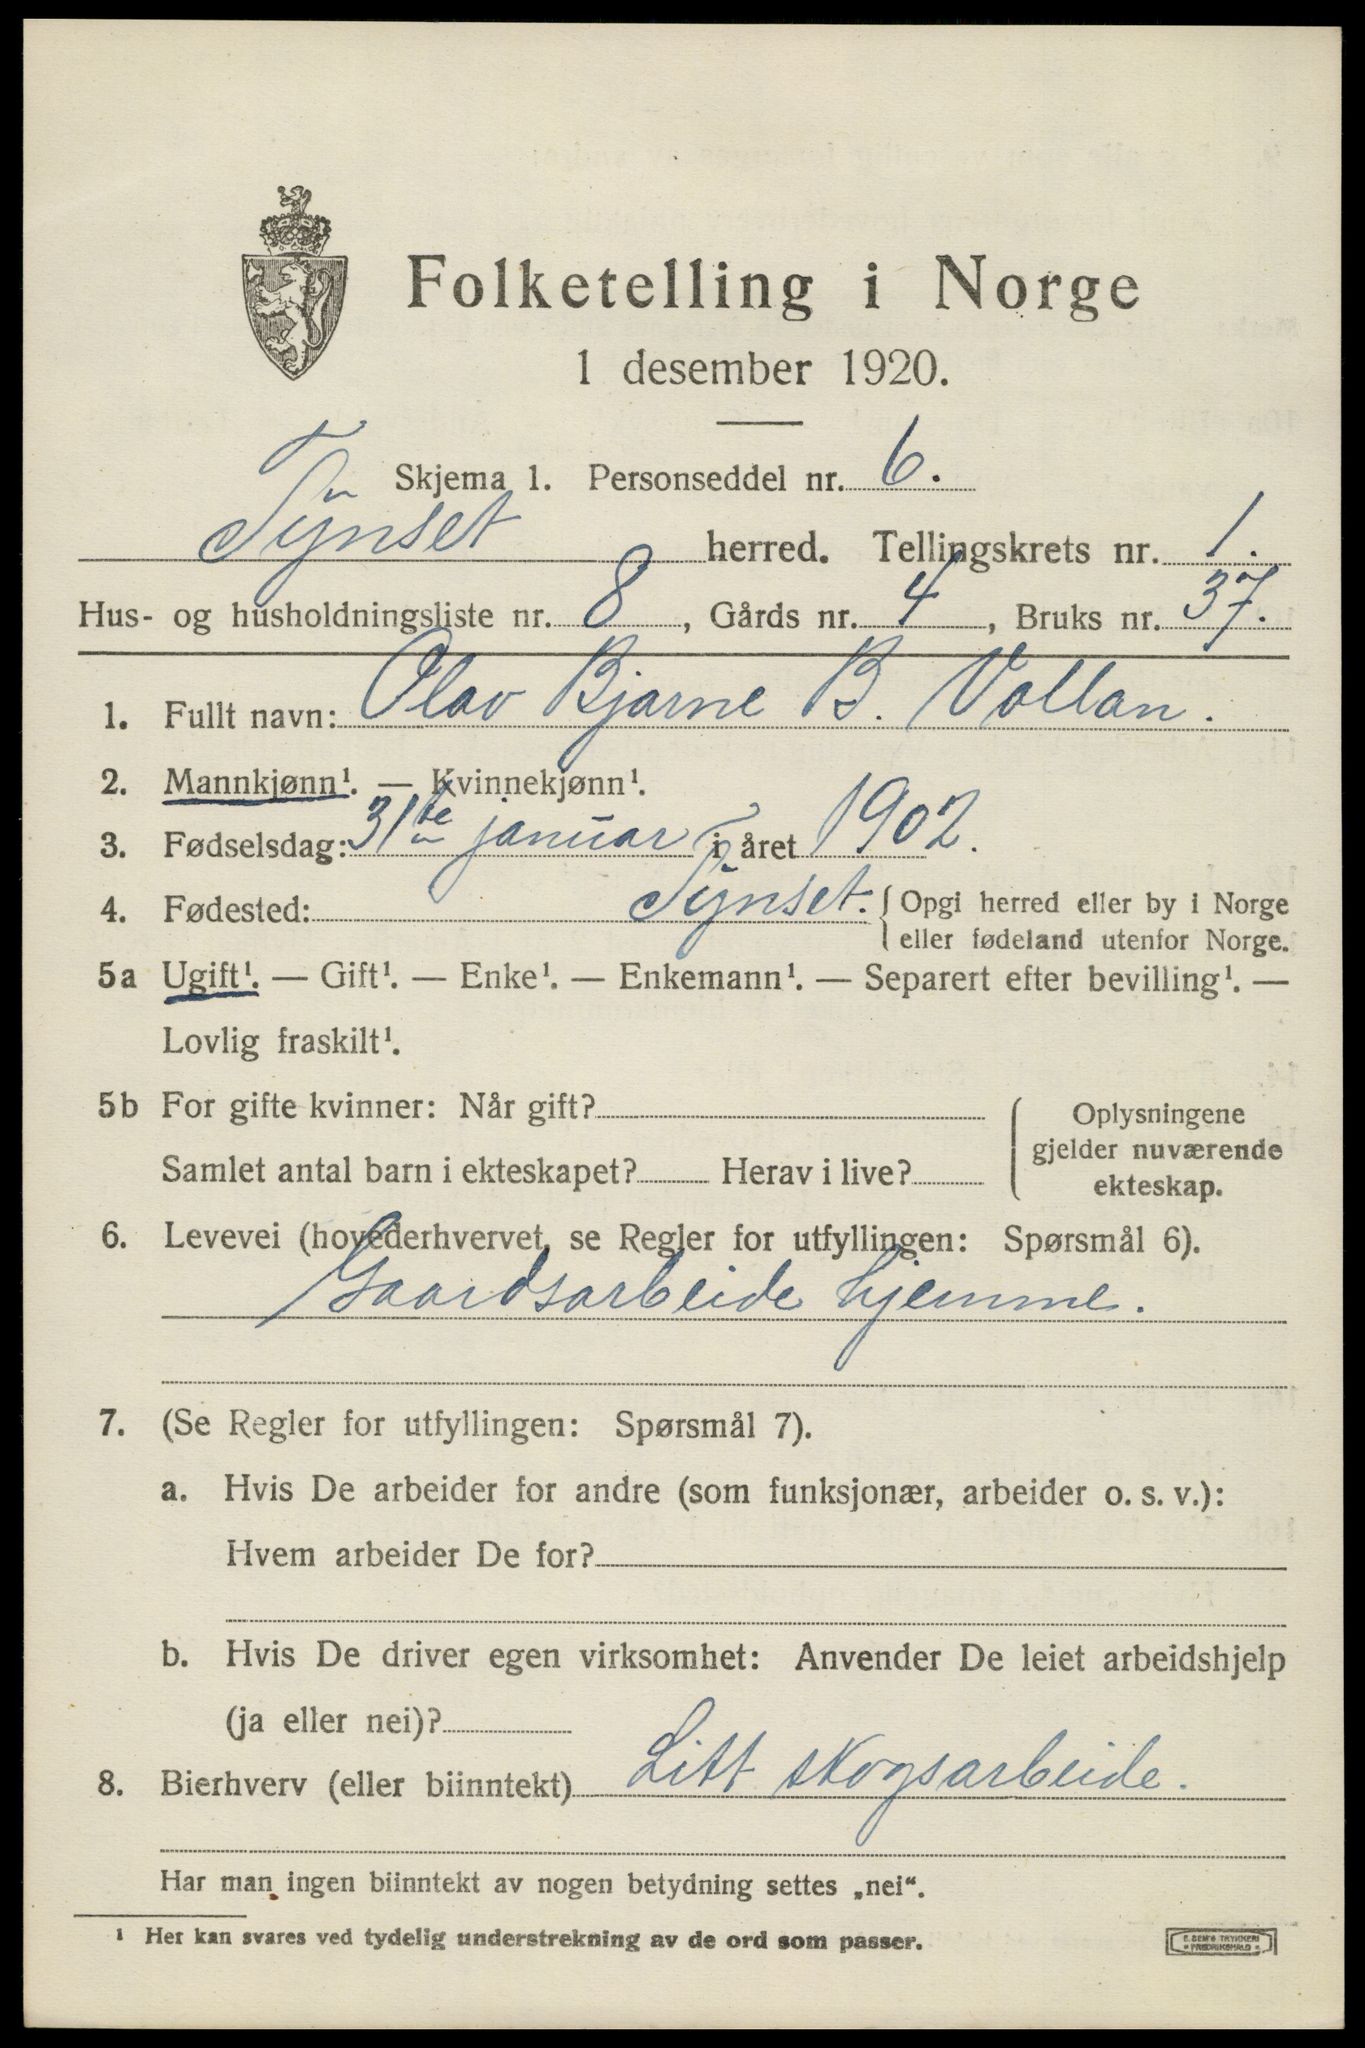 Folketelling i Norge
1 desember 1920.
Skjema 1. Personseddel nr. 6.
Tynset herred. Tellingskrets nr. 1.
Hus- og husholdningsliste nr. 8, Gårds nr. 4, Bruks nr. 37.
1. Fullt navn: Olav Bjarne B. Vollan.
2. Mannkjønn¹. — Kvinnekjønn¹.
3. Fødselsdag: 31te januar i året 1902.
4. Fødested: Tynset. { Opgi herred eller by i Norge
eller fødeland utenfor Norge.
5a Ugift¹. — Gift¹. — Enke¹. — Enkemann¹. — Separert efter bevilling¹. —
Lovlig fraskilt¹.
5b For gifte kvinner: Når gift?
Samlet antal barn i ekteskapet? Herav i live?
Oplysningene
gjelder nuværende
ekteskap.
6. Levevei (hovederhvervet, se Regler for utfyllingen: Spørsmål 6).
Gaardsarbeide hjemme.
7. (Se Regler for utfyllingen: Spørsmål 7).
a. Hvis De arbeider for andre (som funksjonær, arbeider o. s. v.):
Hvem arbeider De for?
b. Hvis De driver egen virksomhet: Anvender De leiet arbeidshjelp
(ja eller nei)?
8. Bierhverv (eller biinntekt) Litt skogsarbeide.
Har man ingen biinntekt av nogen betydning settes „nei“.
¹ Her kan svares ved tydelig understrekning av de ord som passer.
E. SEM'S TRYKKERI
FREDRIKSHALD